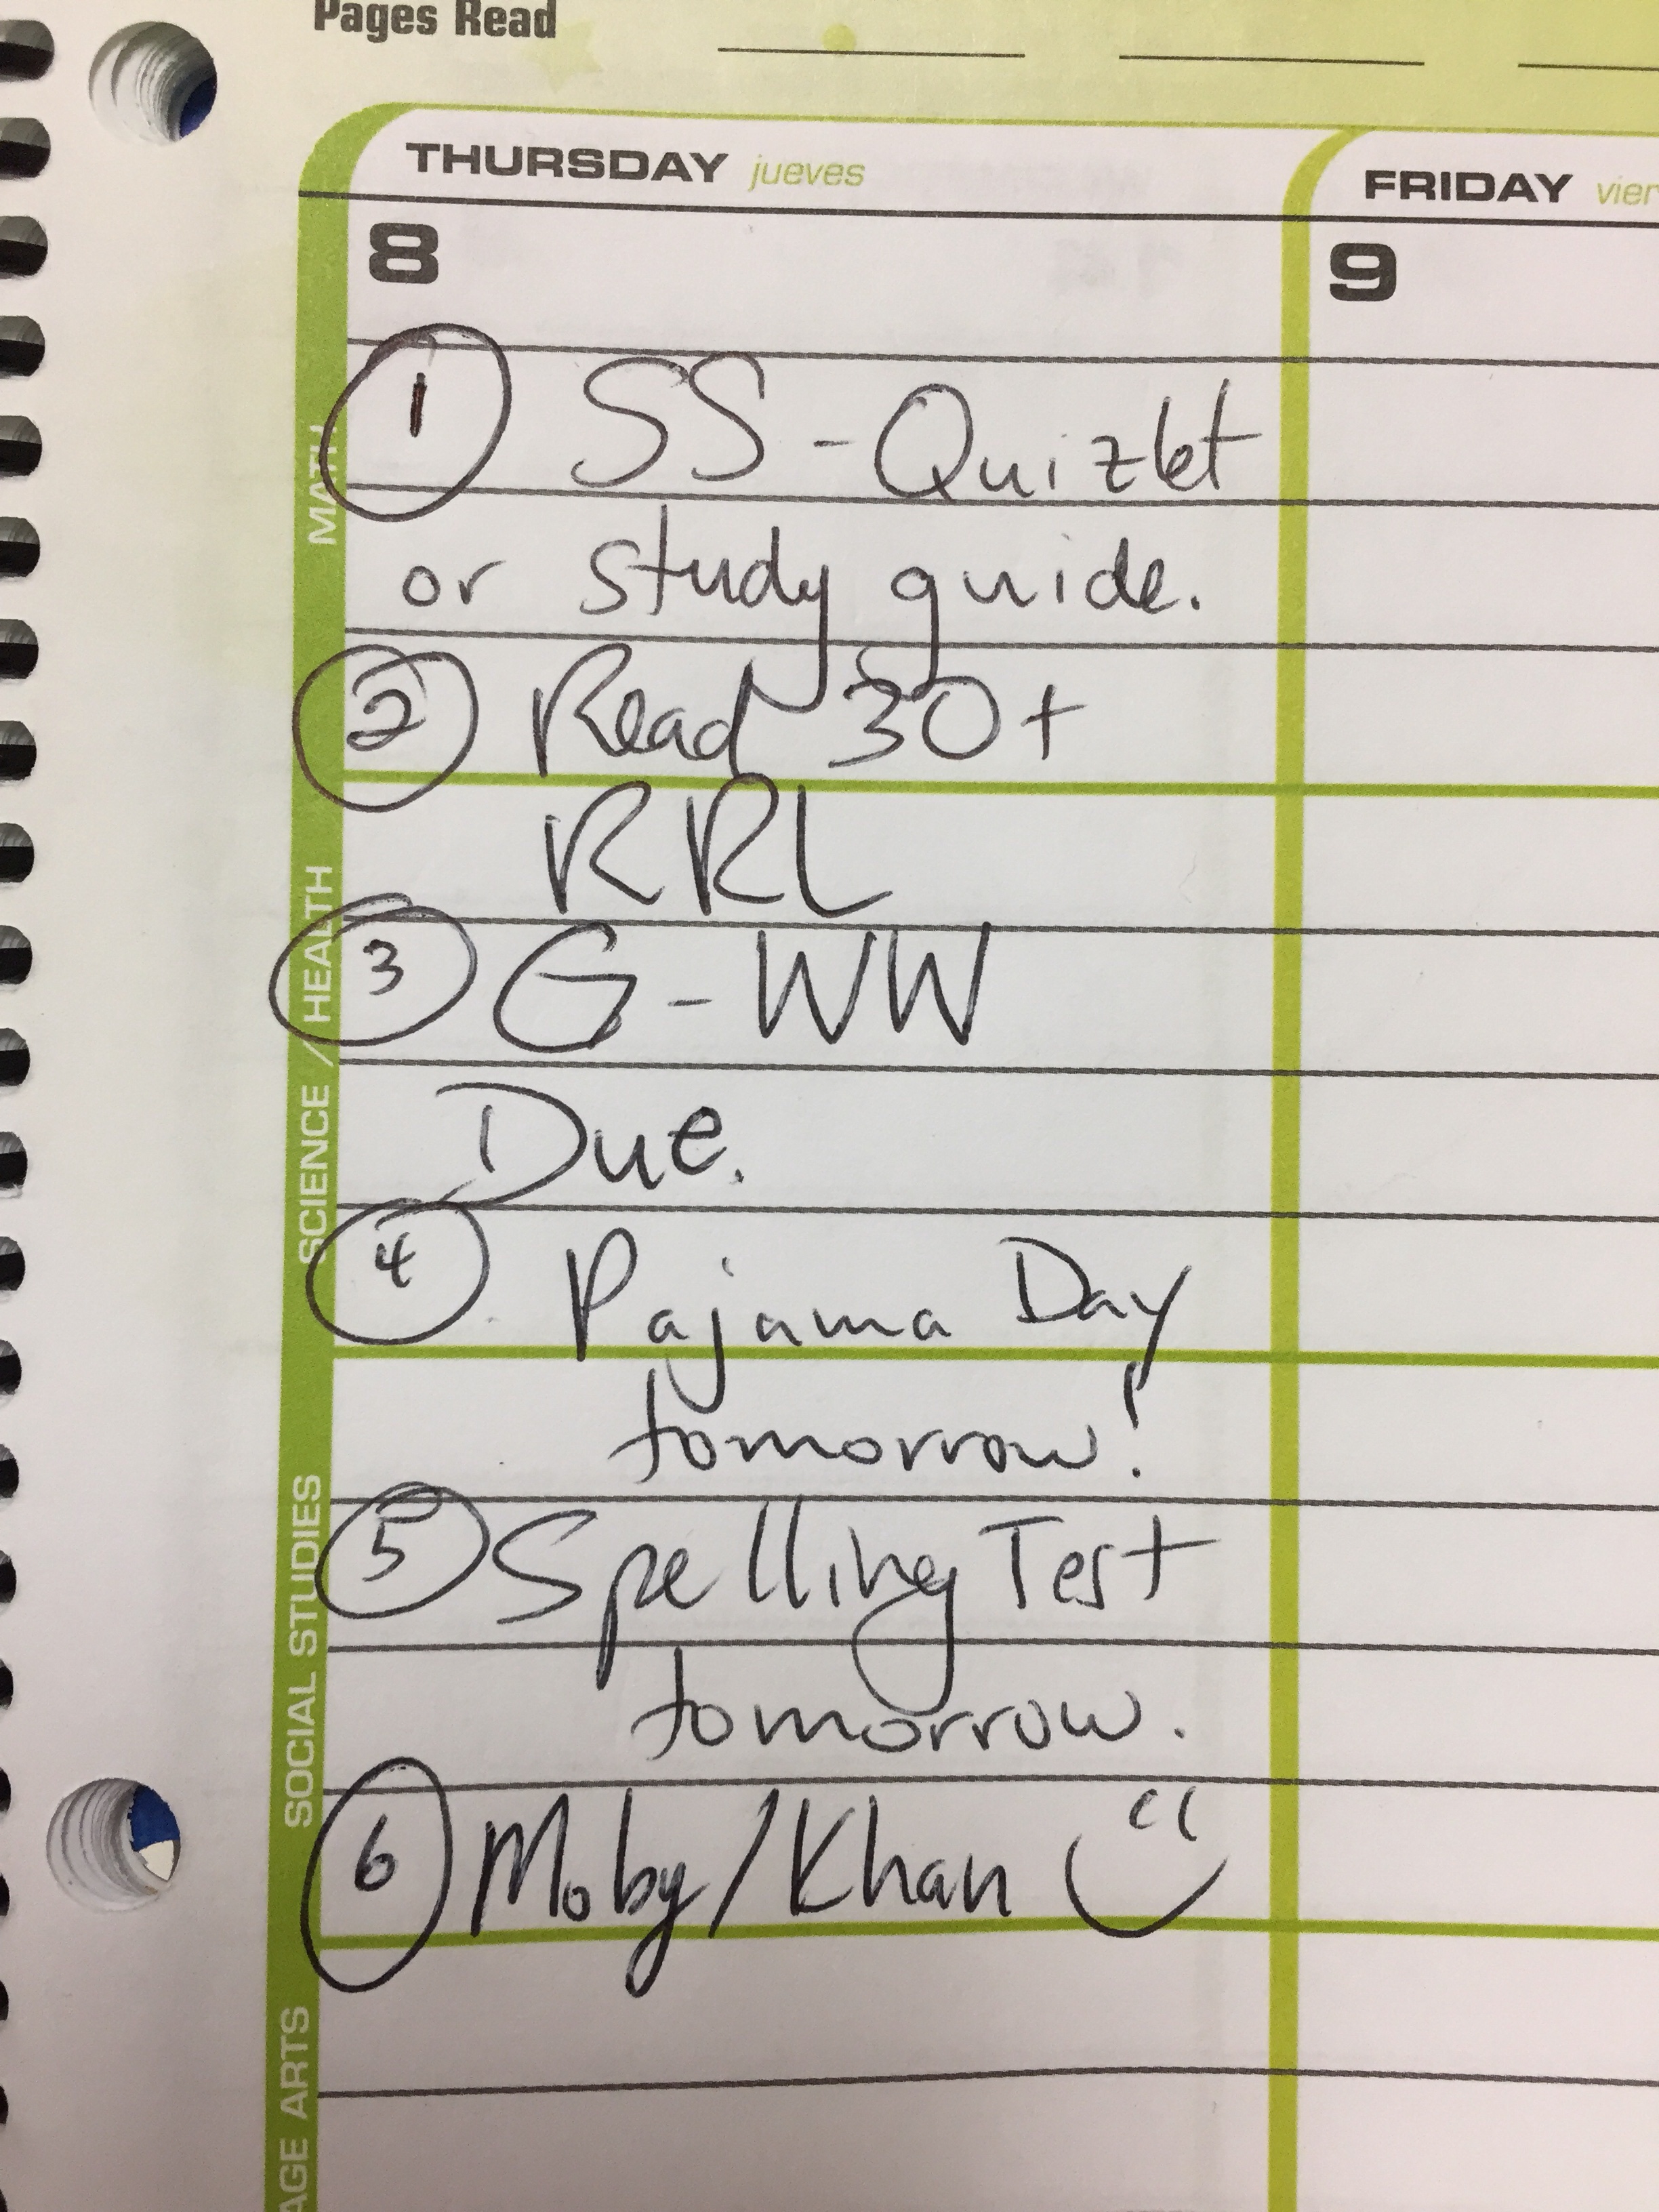 Pages Read
THURSDAY jueves
FRIDAY vier
8
9
MATH
1 SS - Quizlet
or study guide.
2 Read 30+
RRL
SCIENCE / HEALTH
3 G - WW
Due.
4 Pajama Day
tomorrow!
SOCIAL STUDIES
5 Spelling Test
tomorrow.
6 Moby/Khan
AGE ARTS